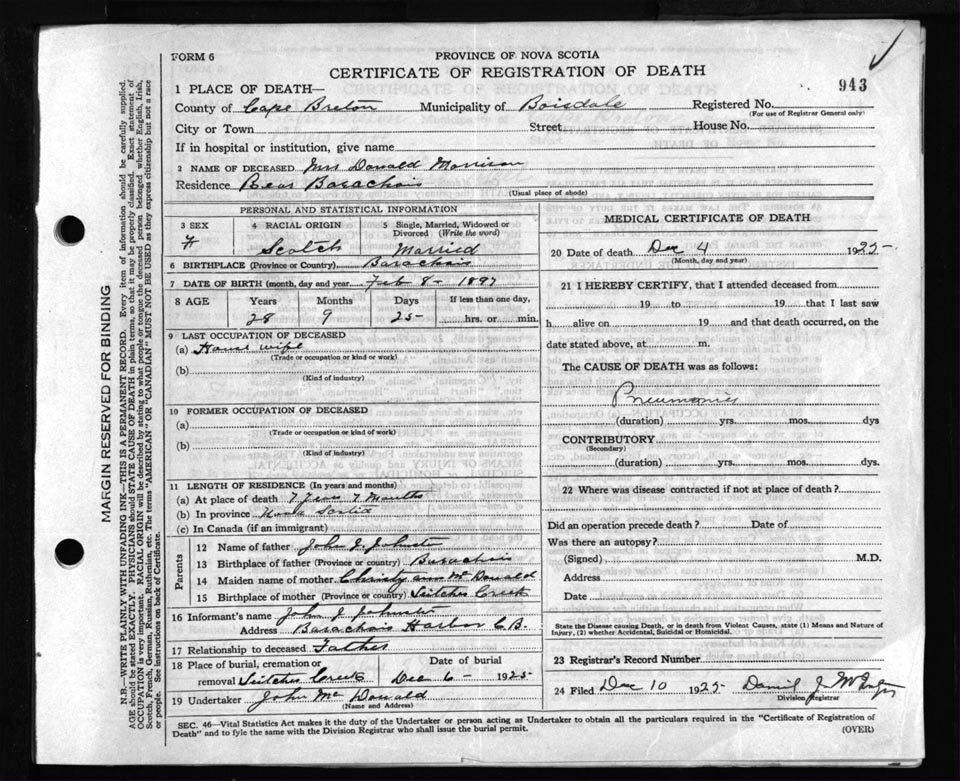 FORM 6
PROVINCE OF NOVA SCOTIA
CERTIFICATE OF REGISTRATION OF DEATH
943
1 PLACE OF DEATH—
County of Cape Breton Municipality of Boisdale Registered No.
(For use of Registrar General only)
City or Town Street House No.
If in hospital or institution, give name
2 NAME OF DECEASED Mrs Donald Morrison
Residence Rear Barachois
(Usual place of abode)
PERSONAL AND STATISTICAL INFORMATION
3 SEX 4 RACIAL ORIGIN 5 Single, Married, Widowed or Divorced (Write the word)
F Scotch Married
6 BIRTHPLACE (Province or Country) Barachois
7 DATE OF BIRTH (month, day and year Feb 8 - 1897
8 AGE Years Months Days If less than one day,
28 9 25 hrs. or min.
9 LAST OCCUPATION OF DECEASED
(a) House wife
(Trade or occupation or kind or work)
(b)
(Kind of industry)
10 FORMER OCCUPATION OF DECEASED
(a)
(Trade or occupation or kind of work)
(b)
(Kind of industry)
11 LENGTH OF RESIDENCE (In years and months)
(a) At place of death 7 Years 7 Months
(b) In province Nova Scotia
(c) In Canada (if an immigrant)
Parents
12 Name of father John J. Johnston
13 Birthplace of father (Province or country) Barachois
14 Maiden name of mother Christy ann McDonald
15 Birthplace of mother (Province or country) Leitches Creek
16 Informant's name John J Johnston
Address Barachois Harbor C.B.
17 Relationship to deceased Father
18 Place of burial, cremation or removal Leitches Creek Date of burial Dec 6 - 1925
19 Undertaker John McDonald
(Name and Address)
MEDICAL CERTIFICATE OF DEATH
20 Date of death Dec 4 1925
(Month, day and year)
21 I HEREBY CERTIFY, that I attended deceased from
19 to 19 that I last saw
h alive on 19 and that death occurred, on the
date stated above, at m.
The CAUSE OF DEATH was as follows:
Pneumonia
(duration) yrs. mos. dys
CONTRIBUTORY
(Secondary)
(duration) yrs. mos. dys.
22 Where was disease contracted if not at place of death?
Did an operation precede death? Date of
Was there an autopsy?
(Signed) M.D.
Address
Date
State the Disease causing Death, or in death from Violent Causes, state (1) Means and Nature of
Injury, (2) whether Accidental, Suicidal or Homicidal.
23 Registrar's Record Number
24 Filed Dec 10 1925 Daniel J
Division Registrar
SEC. 46—Vital Statistics Act makes it the duty of the Undertaker or person acting as Undertaker to obtain all the particulars required in the "Certificate of Registration of
Death" and to fyle the same with the Division Registrar who shall issue the burial permit.
(OVER)
MARGIN RESERVED FOR BINDING
N.B.—WRITE PLAINLY WITH UNFADING INK—THIS IS A PERMANENT RECORD. Every item of information should be carefully supplied.
AGE should be stated EXACTLY. PHYSICIANS should STATE CAUSE OF DEATH in plain terms, so that it may be properly classified. Exact statement of
OCCUPATION is very important. RACIAL ORIGIN will be described by stating to what people or tongue the deceased person belonged whether English, Irish,
Scotch, French, German, Russian, Ruthenian, etc. The terms "AMERICAN" OR "CANADIAN" MUST NOT BE USED as they express citizenship but not a race
or people. See instructions on back of Certificate.